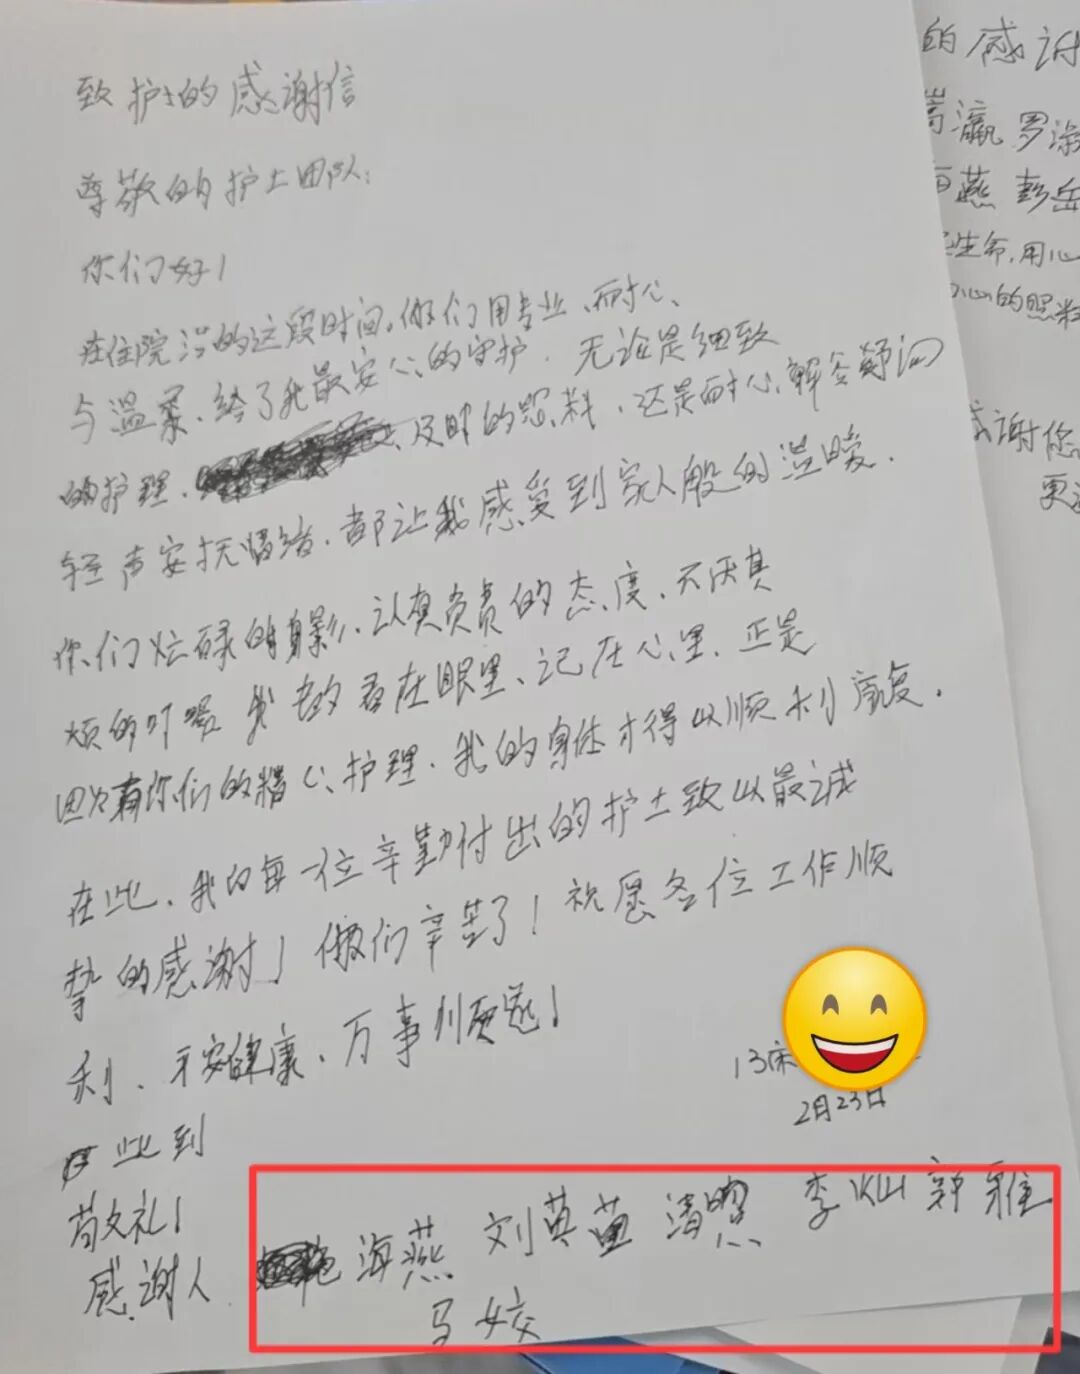 致护士的感谢信
尊敬的护士团队：
你们好！
在住院的这段时间，你们用专业、耐心、
与温柔、给了我最安心的守护．无论是细致
的护理、及时的照料，还是耐心解答疑问
轻声安抚情绪，都让我感受到家人般的温暖．
你们忙碌的身影、认真负责的态度、不厌其
烦的叮嘱 我都看在眼里、记在心里．正是
因为有你们的精心护理、我的身体才得以顺利康复．
在此、我向每一位辛勤付出的护士致以最诚
挚的感谢！你们辛苦了！祝愿各位工作顺
利、平安健康、万事顺遂！
13床
2月23日
此到
敬礼！
感谢人 海燕 刘英 黄清照 李灿 郭雅
马姣
的感谢
瀛 罗
燕 彭岳
生命，用心
心的照料
感谢您
更